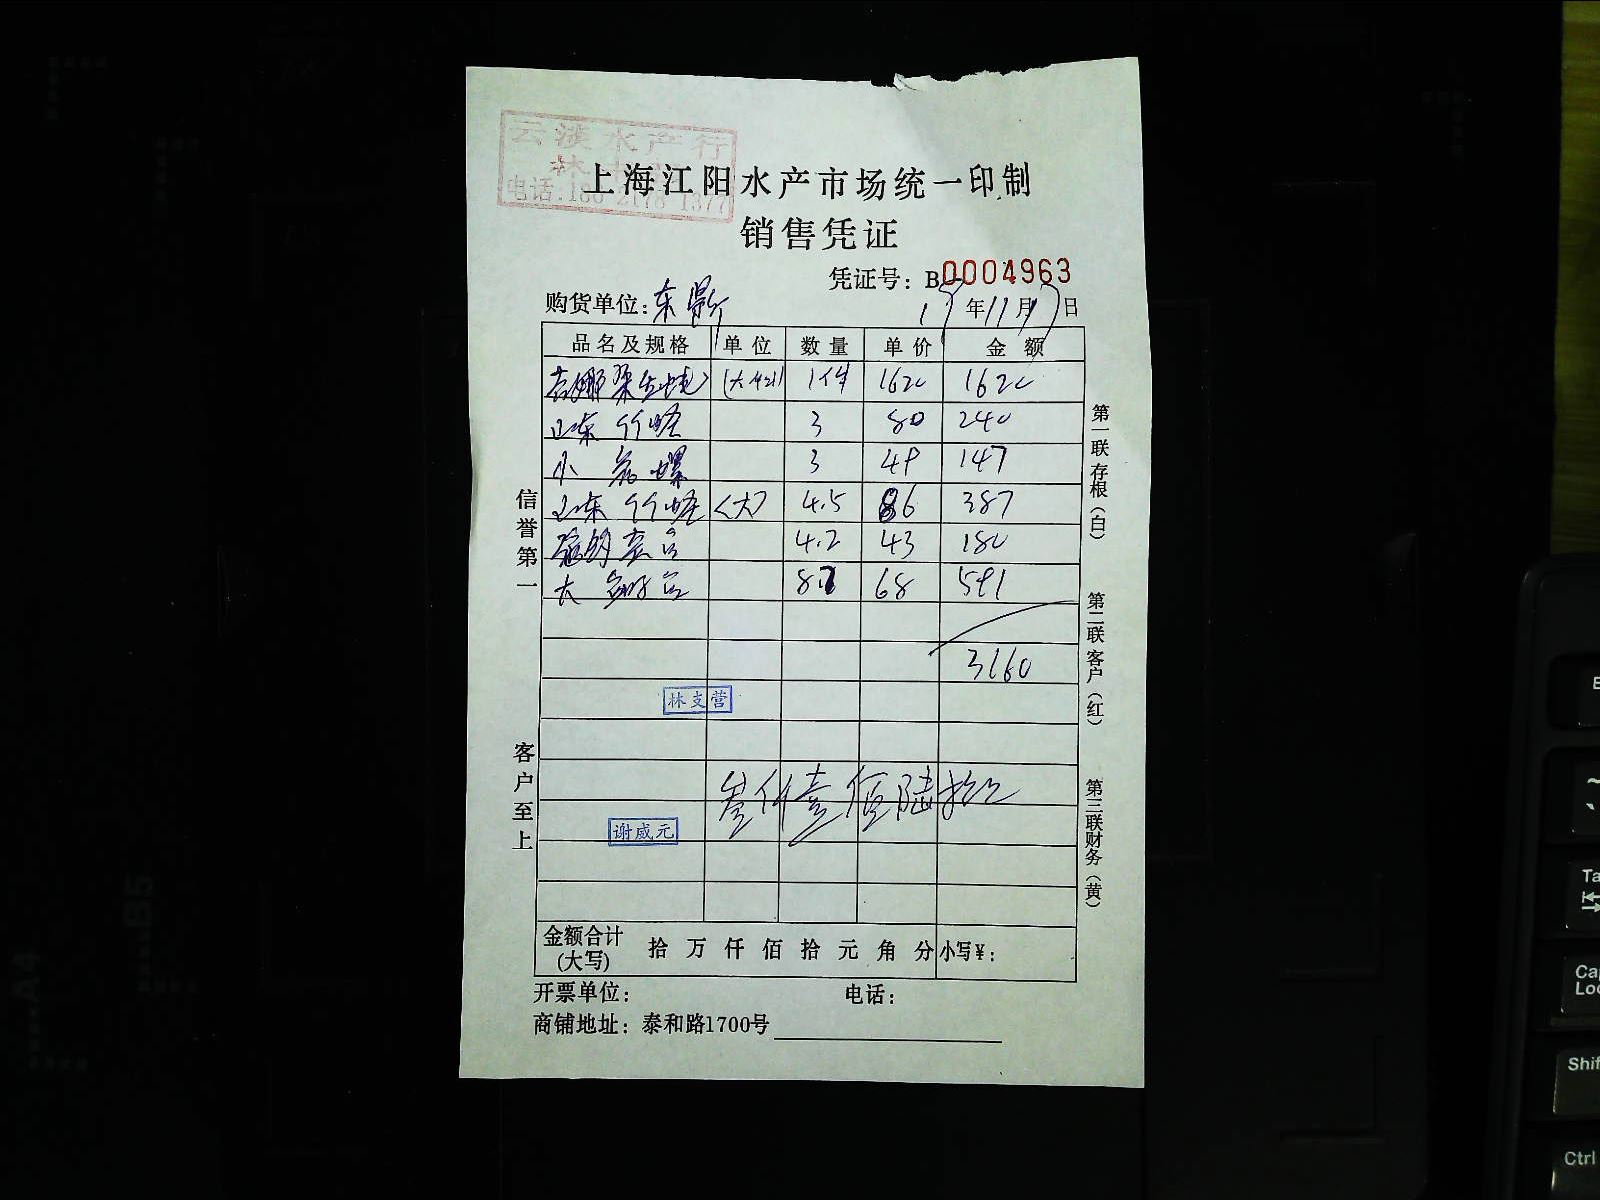 云 淡 水 产 行
林
电话:186 2178 1377
上海江阳水产市场统一印制
销售凭证
凭证号: B0004963
购货单位: 东
19 年 11 月 17 日
品名及规格 单位 数量 单价 金额
1件 1620 1620
山东竹蛏 3 80 240
小花螺 3 49 147
山东竹蛏 <大> 4.5 86 387
4.2 43 180
大 8.7 68 591
3160
林支营
叁仟壹佰陆拾元
谢威元
金额合计(大写) 拾 万 仟 佰 拾 元 角 分 小写¥:
开票单位: 电话:
商铺地址: 泰和路1700号
信誉第一
客户至上
第一联存根(白)
第二联客户(红)
第三联财务(黄)
A4
B5
Shift
Ctrl